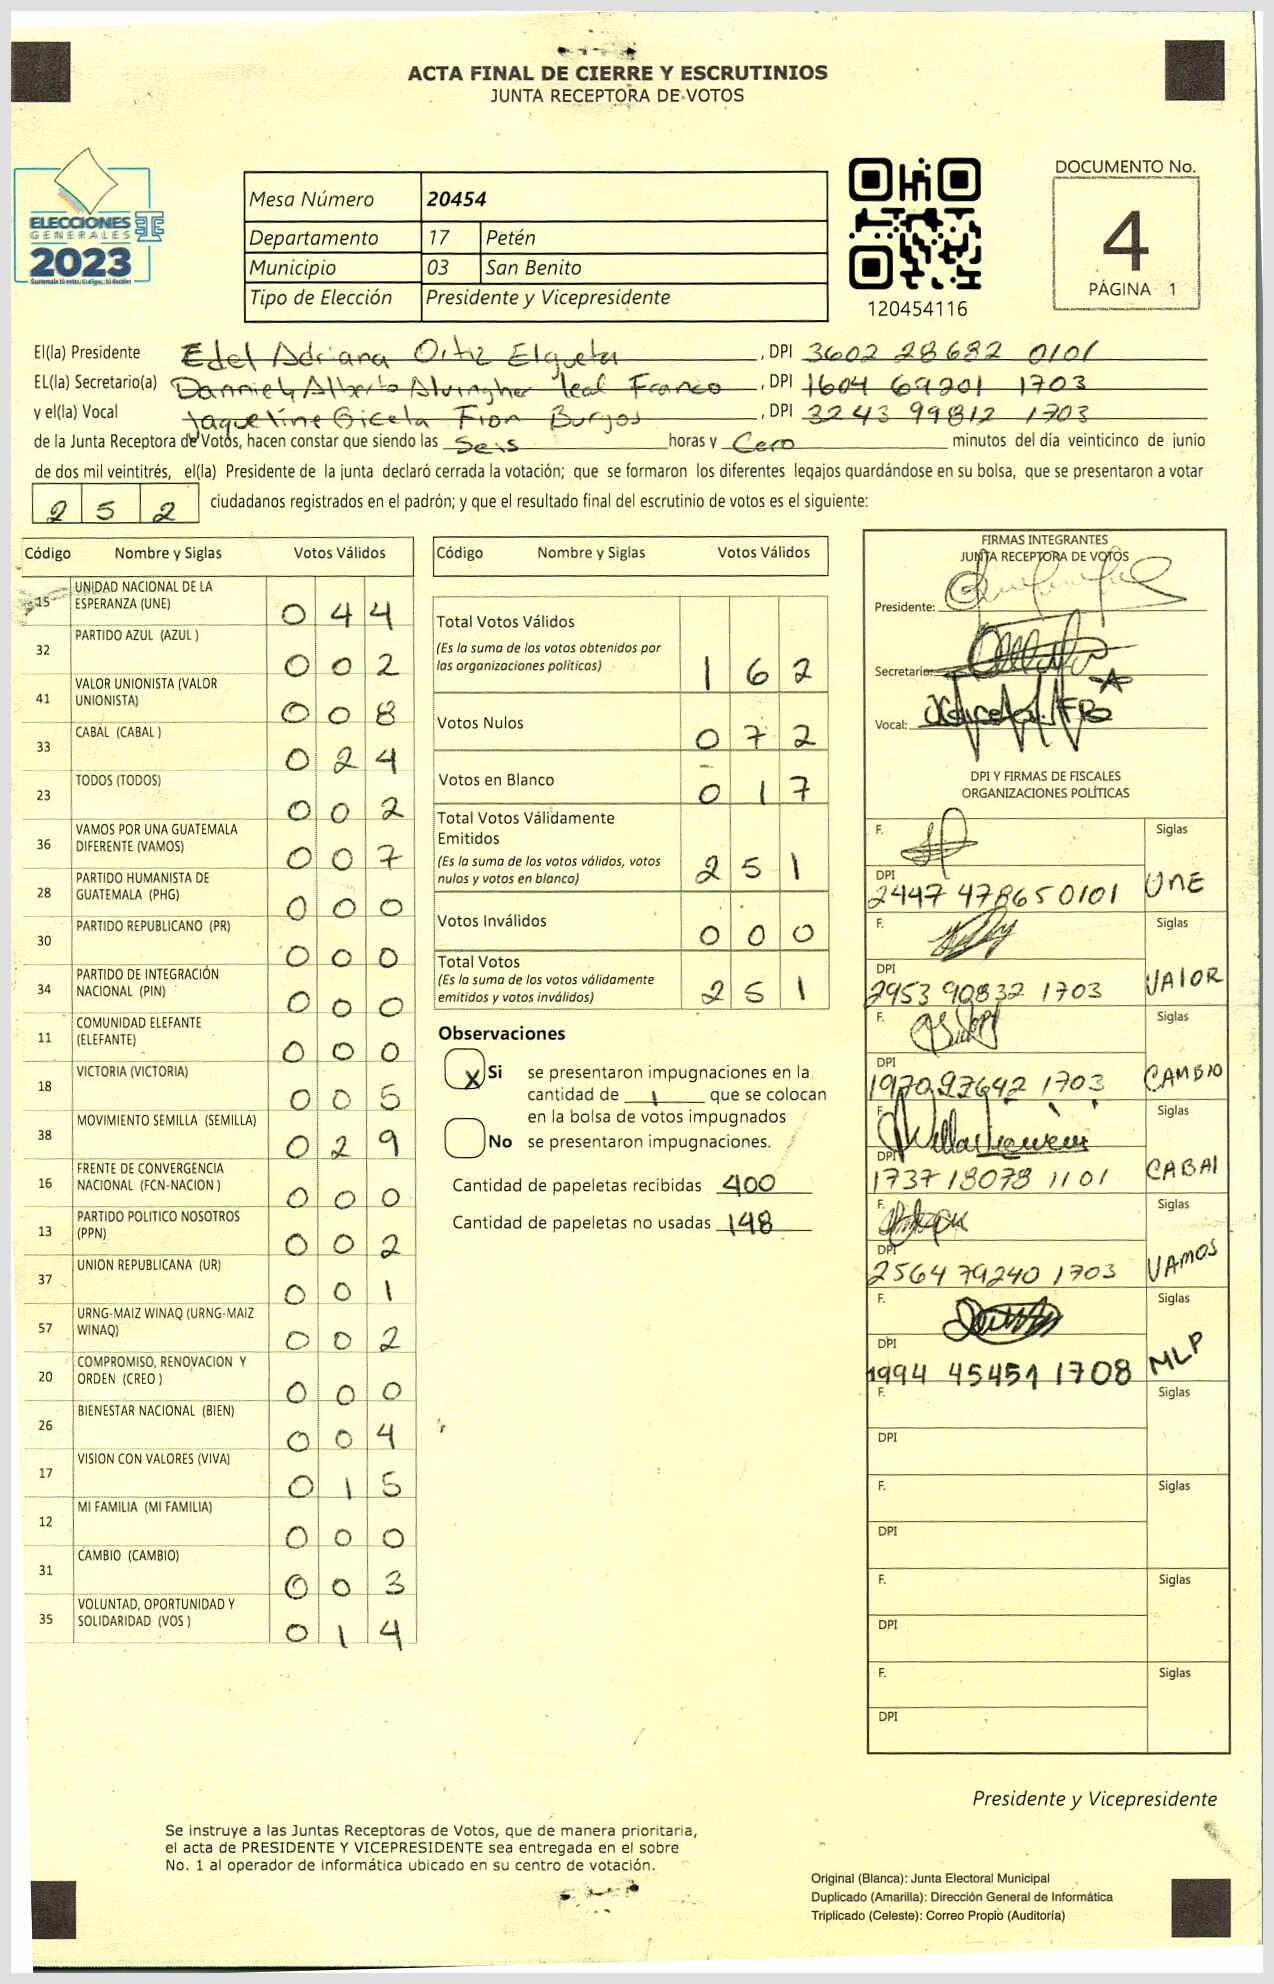 ACTA FINAL DE CIERRE Y ESCRUTINIOS
JUNTA RECEPTORA DE VOTOS
ELECCIONES
GENERALES
2023
Mesa Número 20454
Departamento 17 Petén
Municipio 03 San Benito
Tipo de Elección Presidente y Vicepresidente
120454116
DOCUMENTO No.
4
PÁGINA 1
El(la) Presidente Edel Adriana Ortiz Elgueta, DPI 3602 28682 0101
EL(la) Secretario(a) Danniel Alberto Leal Franco, DPI 1604 69201 1703
y el(la) Vocal Jaqueline Gicela Fion Burgos, DPI 3243 99812 1703
de la Junta Receptora de Votos, hacen constar que siendo las Seis horas y Cero minutos del día veinticinco de junio
de dos mil veintitrés, el(la) Presidente de la junta declaró cerrada la votación; que se formaron los diferentes legajos quardándose en su bolsa, que se presentaron a votar
252 ciudadanos registrados en el padrón; y que el resultado final del escrutinio de votos es el siguiente:
Código Nombre y Siglas Votos Válidos
15 UNIDAD NACIONAL DE LA ESPERANZA (UNE) 044
32 PARTIDO AZUL (AZUL ) 002
41 VALOR UNIONISTA (VALOR UNIONISTA) 008
33 CABAL (CABAL ) 024
23 TODOS (TODOS) 002
36 VAMOS POR UNA GUATEMALA DIFERENTE (VAMOS) 007
28 PARTIDO HUMANISTA DE GUATEMALA (PHG) 000
30 PARTIDO REPUBLICANO (PR) 000
34 PARTIDO DE INTEGRACIÓN NACIONAL (PIN) 000
11 COMUNIDAD ELEFANTE (ELEFANTE) 000
18 VICTORIA (VICTORIA) 005
38 MOVIMIENTO SEMILLA (SEMILLA) 029
16 FRENTE DE CONVERGENCIA NACIONAL (FCN-NACION ) 000
13 PARTIDO POLITICO NOSOTROS (PPN) 002
37 UNION REPUBLICANA (UR) 001
57 URNG-MAIZ WINAQ (URNG-MAIZ WINAQ) 002
20 COMPROMISO, RENOVACION Y ORDEN (CREO ) 000
26 BIENESTAR NACIONAL (BIEN) 004
17 VISION CON VALORES (VIVA) 015
12 MI FAMILIA (MI FAMILIA) 000
31 CAMBIO (CAMBIO) 003
35 VOLUNTAD, OPORTUNIDAD Y SOLIDARIDAD (VOS ) 014
Código Nombre y Siglas Votos Válidos
Total Votos Válidos
(Es la suma de los votos obtenidos por
las organizaciones políticas) 162
Votos Nulos 072
Votos en Blanco 017
Total Votos Válidamente
Emitidos
(Es la suma de los votos válidos, votos
nulos y votos en blanco) 251
Votos Inválidos 000
Total Votos
(Es la suma de los votos válidamente
emitidos y votos inválidos) 251
Observaciones
X Si se presentaron impugnaciones en la
cantidad de 1 que se colocan
en la bolsa de votos impugnados
No se presentaron impugnaciones.
Cantidad de papeletas recibidas 400
Cantidad de papeletas no usadas 148
FIRMAS INTEGRANTES
JUNTA RECEPTORA DE VOTOS
Presidente:
Secretario:
Vocal:
DPI Y FIRMAS DE FISCALES
ORGANIZACIONES POLÍTICAS
F. Siglas
DPI 2447 47865 0101 UNE
F. Siglas
DPI 2953 90832 1703 VALOR
F. Siglas
DPI 1970 97642 1703 CAMBIO
F. Siglas
DPI 1737 18078 1101 CABAL
F. Siglas
DPI 2564 79240 1703 VAMOS
F. Siglas
DPI 1994 45451 1708 MLP
F. Siglas
DPI
F. Siglas
DPI
F. Siglas
DPI
F. Siglas
DPI
Presidente y Vicepresidente
Se instruye a las Juntas Receptoras de Votos, que de manera prioritaria,
el acta de PRESIDENTE Y VICEPRESIDENTE sea entregada en el sobre
No. 1 al operador de informática ubicado en su centro de votación.
Original (Blanca): Junta Electoral Municipal
Duplicado (Amarilla): Dirección General de Informática
Triplicado (Celeste): Correo Propio (Auditoría)